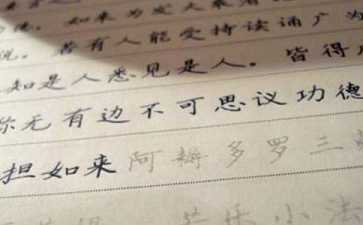 如来为发大乘者
说。若有人能受持读诵广为
知是人悉见是人。皆得
称无有边不可思议功德
担如来阿耨多罗三
若乐小法